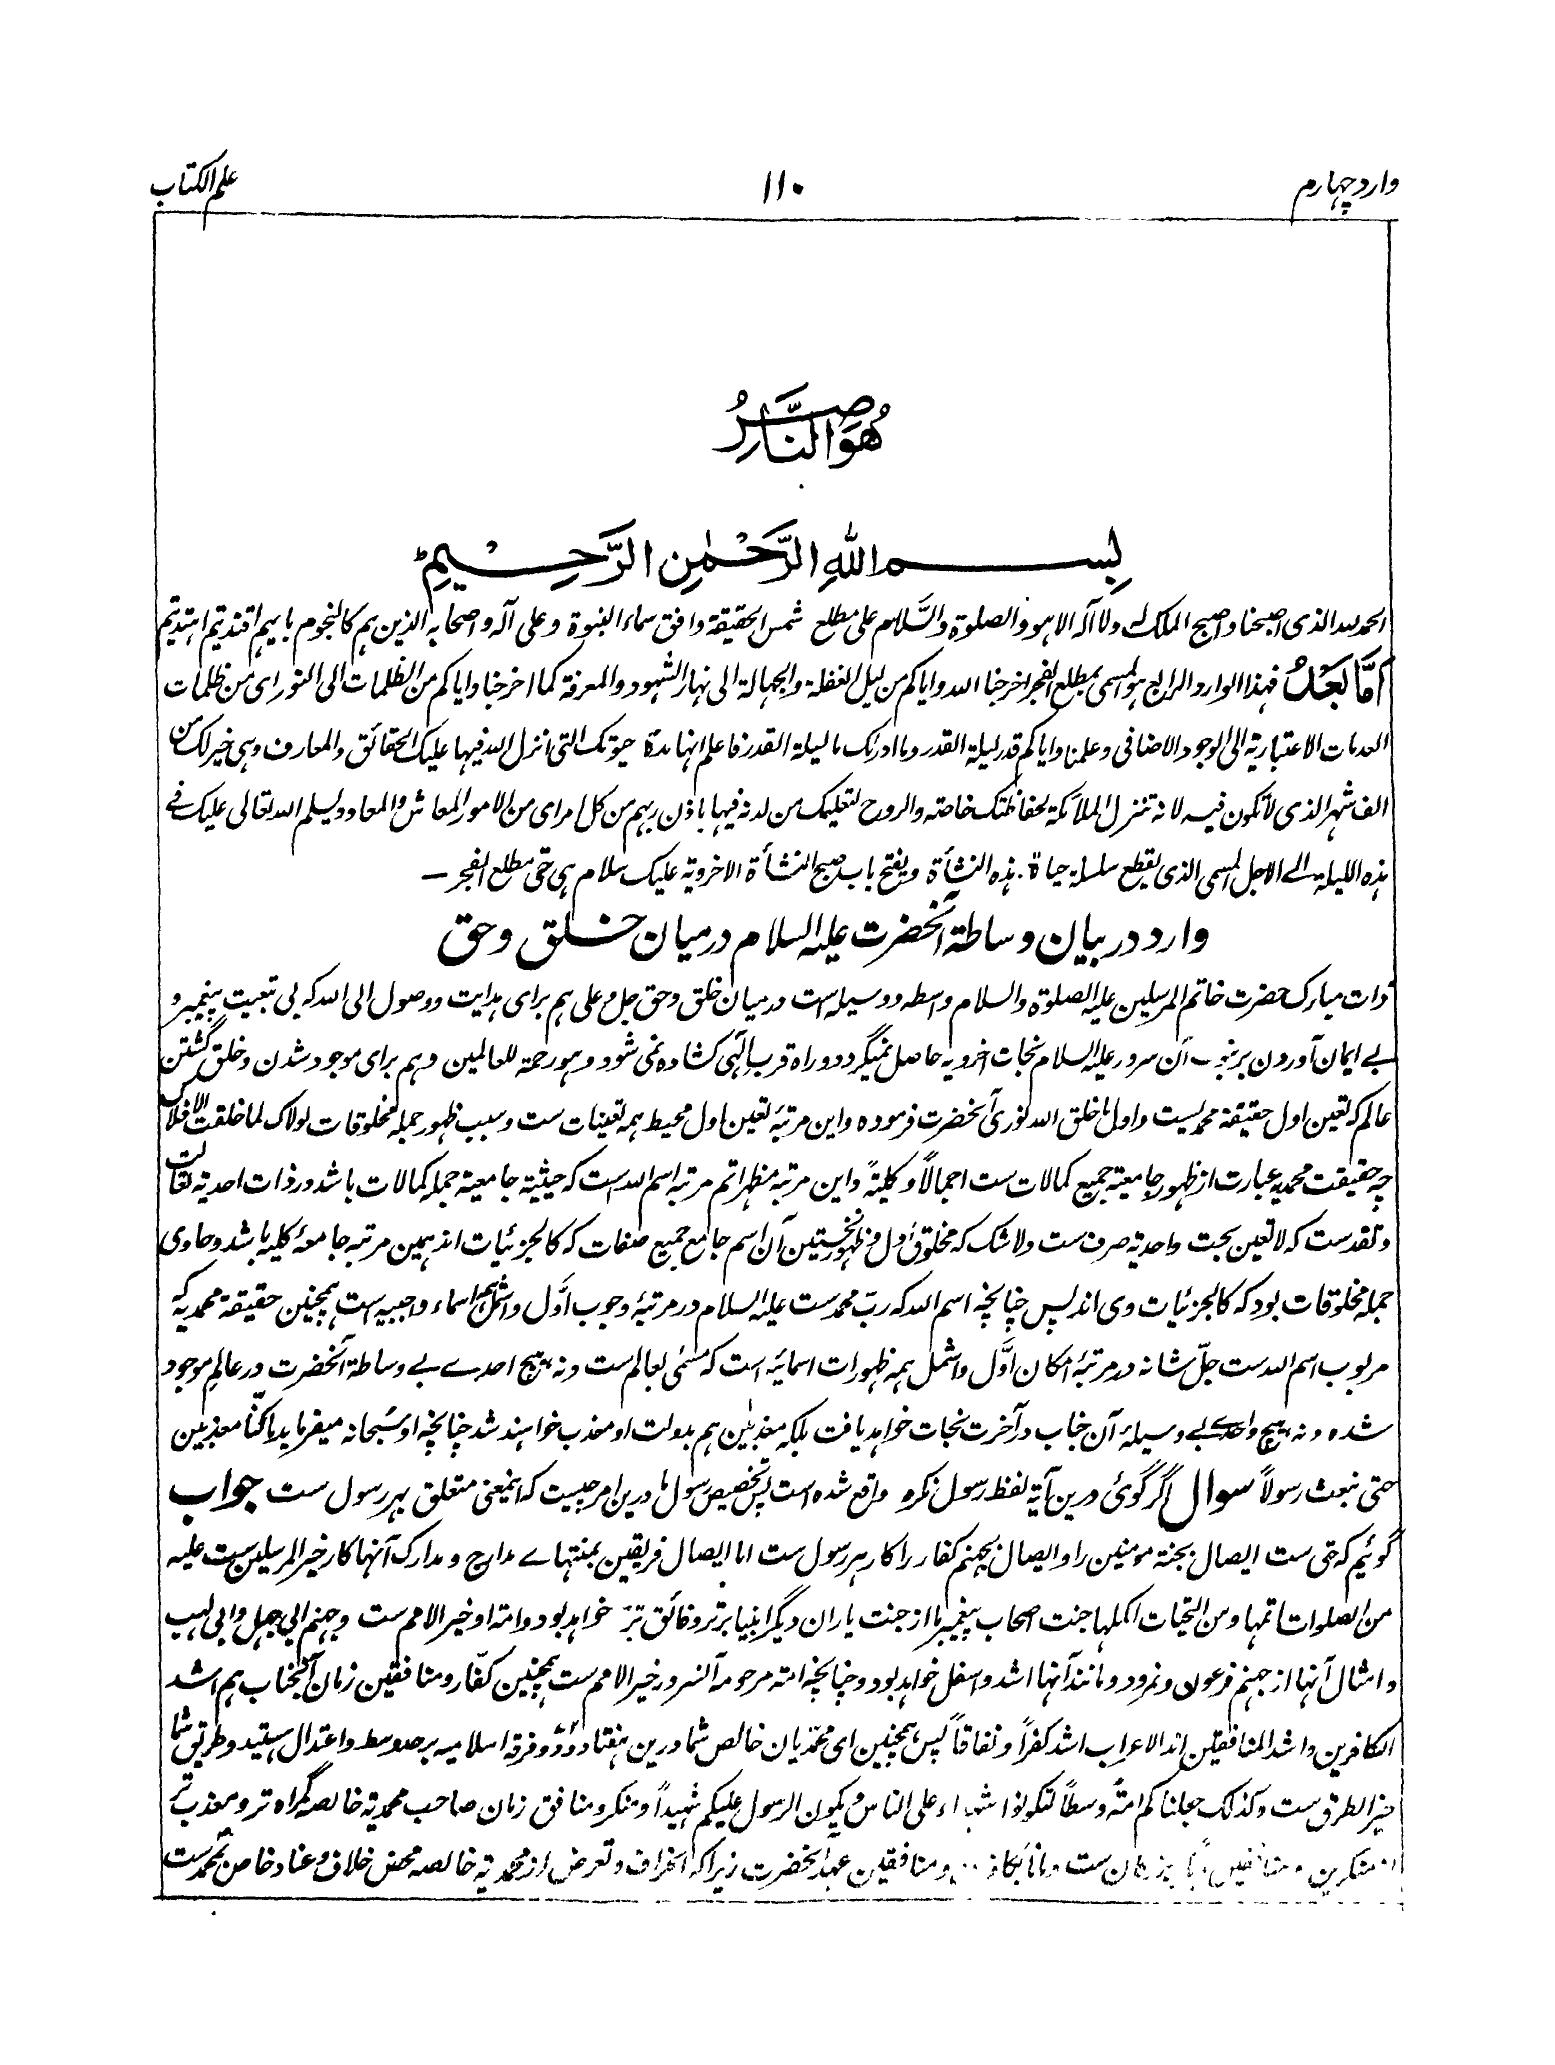 وارد چهارم
۱۱۰
علم الکتاب
هُوَ النَّاصِرُ
بِسم اللهِ الرَّحْمٰنِ الرَّحِیْمِ
الحمد لله الذی اصبحنا و اصبح الملک لله ولا اله الا هو والصلوة والسَّلام علی مطلع شمس الحقیقة وافق سماء النبوة وعلی آله واصحابه الذین هم کالنجوم بایهم اقتدیتم اهتدیتم
اَمَّا بَعْدُ فهذا الوارد الرابع هو المسمی بمطلع الفجر اخرجنا الله وایاکم من لیل الغفلة والجهالة الی نهار الشهود والمعرفة کما اخرجنا وایاکم من الظلمات الی النور ای من ظلمات
العدمات الاعتباریة الی الوجود الاضافی وعلمنا وایاکم قدر لیلة القدر وما ادرٰک ما لیلة القدر فاعلم انها مدة حیوتک التی انزل الله فیها علیک الحقائق والمعارف وهی خیر لک من
الف شهر الذی لا تکون فیه لانه تنزل الملائکة لحفاظتک خاصته والروح لتعلیمک من لدنه فیها باذن ربهم من کل امر ای من الامور المعاش والمعاد ویسلم الله تعالی علیک فی
هذه اللیلة الے الاجل المسمی الذی یقطع سلسلة حیاة هذه النشأة ویفتح باب صبح النشأة الاخرویة علیک سلام هی حتی مطلع الفجر —
وارد در بیان وساطة آنحضرت علیه السلام درمیان خلق و حق
ذات مبارک حضرت خاتم المرسلین علیه الصلوة والسلام واسطه و وسیله است درمیان خلق و حق جل و علی هم برای هدایت و وصول الی الله که بی تبعیت پیغمبر و
بے ایمان آوردن بر نبوت آن سرور علیه السلام نجات اخرویه حاصل نمیگردد و راه قرب الٰهی کشاده نمی شود وهو رحمة للعالمین و هم برای موجود شدن و خلق گشتن
عالم که تعین اول حقیقة محمدیست و اول ما خلق الله نوری آنحضرت فرموده و این مرتبهٔ تعین اول محیط همه تعینات ست و سبب ظهور جمله مخلوقات لولاک لما خلقت الافلاک
چه حقیقت محمدیه عبارت از ظهور جامعیة جمیع کمالات ست اجمالاً و کلیتهً و این مرتبه مظهر اتم مرتبه اسم الله است که حیثیة جامعیة جمله کمالات باشد و ذات احدیة تعالت
و تقدست که لا تعین بحت و احدیة صرف ست ولا شک که مخلوق اول و مظهر نخستین آن اسم جامع جمیع صفات که کالجزئیات اند همین مرتبه جامعهٔ کلیه باشد و حاوی
جمله مخلوقات بود که کالجزئیات وی اند پس چنانچه اسم الله که ربّ محمدست علیه السلام در مرتبهٔ وجوب اوَّل و اشمل همه اسماء واجبیه است همچنین حقیقة محمدیه که
مربوب اسم الله ست جلّ شانه در مرتبهٔ امکان اوَّل و اشمل همه ظهورات اسمائیه است که مسمّی بعالم ست و نه هیچ احدے بے وساطة آنحضرت در عالم موجود
شده و نه هیچ واحدے بے وسیلهٔ آن جناب در آخرت نجات خواهد یافت بلکه معذبین هم بدولت او معذب خواهند شد چنانچه او سُبحانه میفرماید ما کنّا معذبین
حتی نبعث رسولاً سوال اگر گوئ درین آیة لفظ رسول نکره واقع شده است پس تخصیص رسول ما درین امر چیست که اینمعنی متعلق بهر رسول ست جواب
گوئیم که حتی ست ایصال بجنة مومنین را و ایصال بجهنم کفار را کار هر رسول ست اما ایصال فریقین بمنتهاے مدارج و مدارک آنها کار خیر المرسلین ست علیه
من الصلوات اتمها و من التحیات اکملها جنت اصحاب پیغمبر ما از جنت یاران دیگر انبیا برتر و فائق تر خواهد بود و امته او خیر الامم ست و جهنم ابی جهل و ابی لهب
و امثال آنها از جهنم فرعون و نمرود و مانند آنها اشد و اسفل خواهد بود و چنانچه امته مرحومه آنسرور خیر الامم ست همچنین کفّار و منافقین زمان آنجناب هم اشد
الکافرین و اشد المنافقین اند الاعراب اشد کفراً و نفاقاً پس همچنین ای محمّدیان خالص شما درین هفتاد و دو فرقه اسلامیه بر حد وسط و اعتدال هستید و طریق شما
خیر الطرق ست وکذلک جعلناکم امتهً وسطاً لتکونوا شهداء علی الناس ویکون الرسول علیکم شهیداً و منکر و منافق زمان صاحب محمدیة خالصه گمراه تر و معذب تر
از منکرین و منافقین ... ست ... و منافقین عهد آنحضرت زیراکه انحراف و تعرض از محمدیة خالصه محض خلاف و عناد خاص بمحمد ست